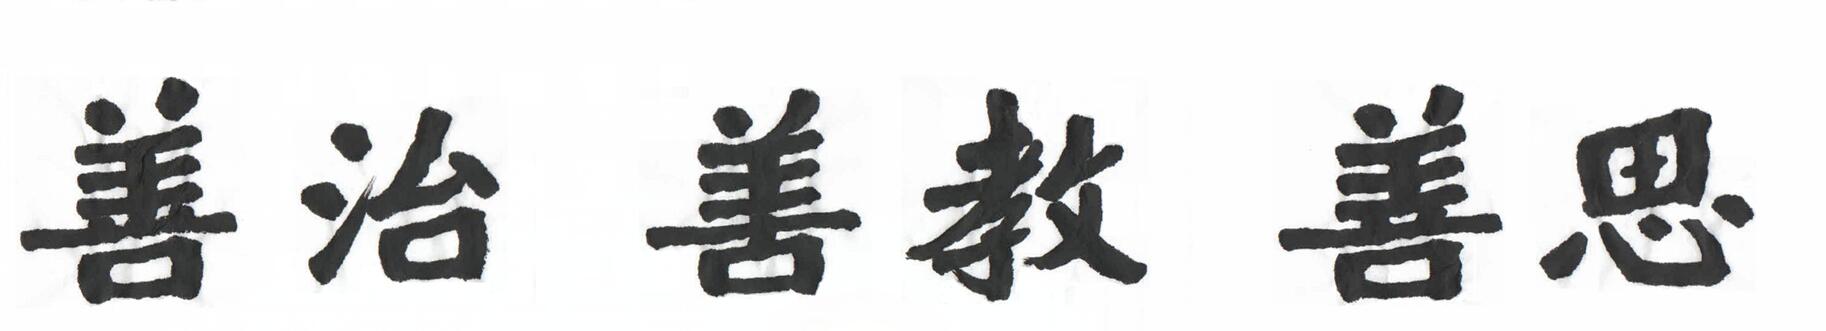 善治 善教 善思